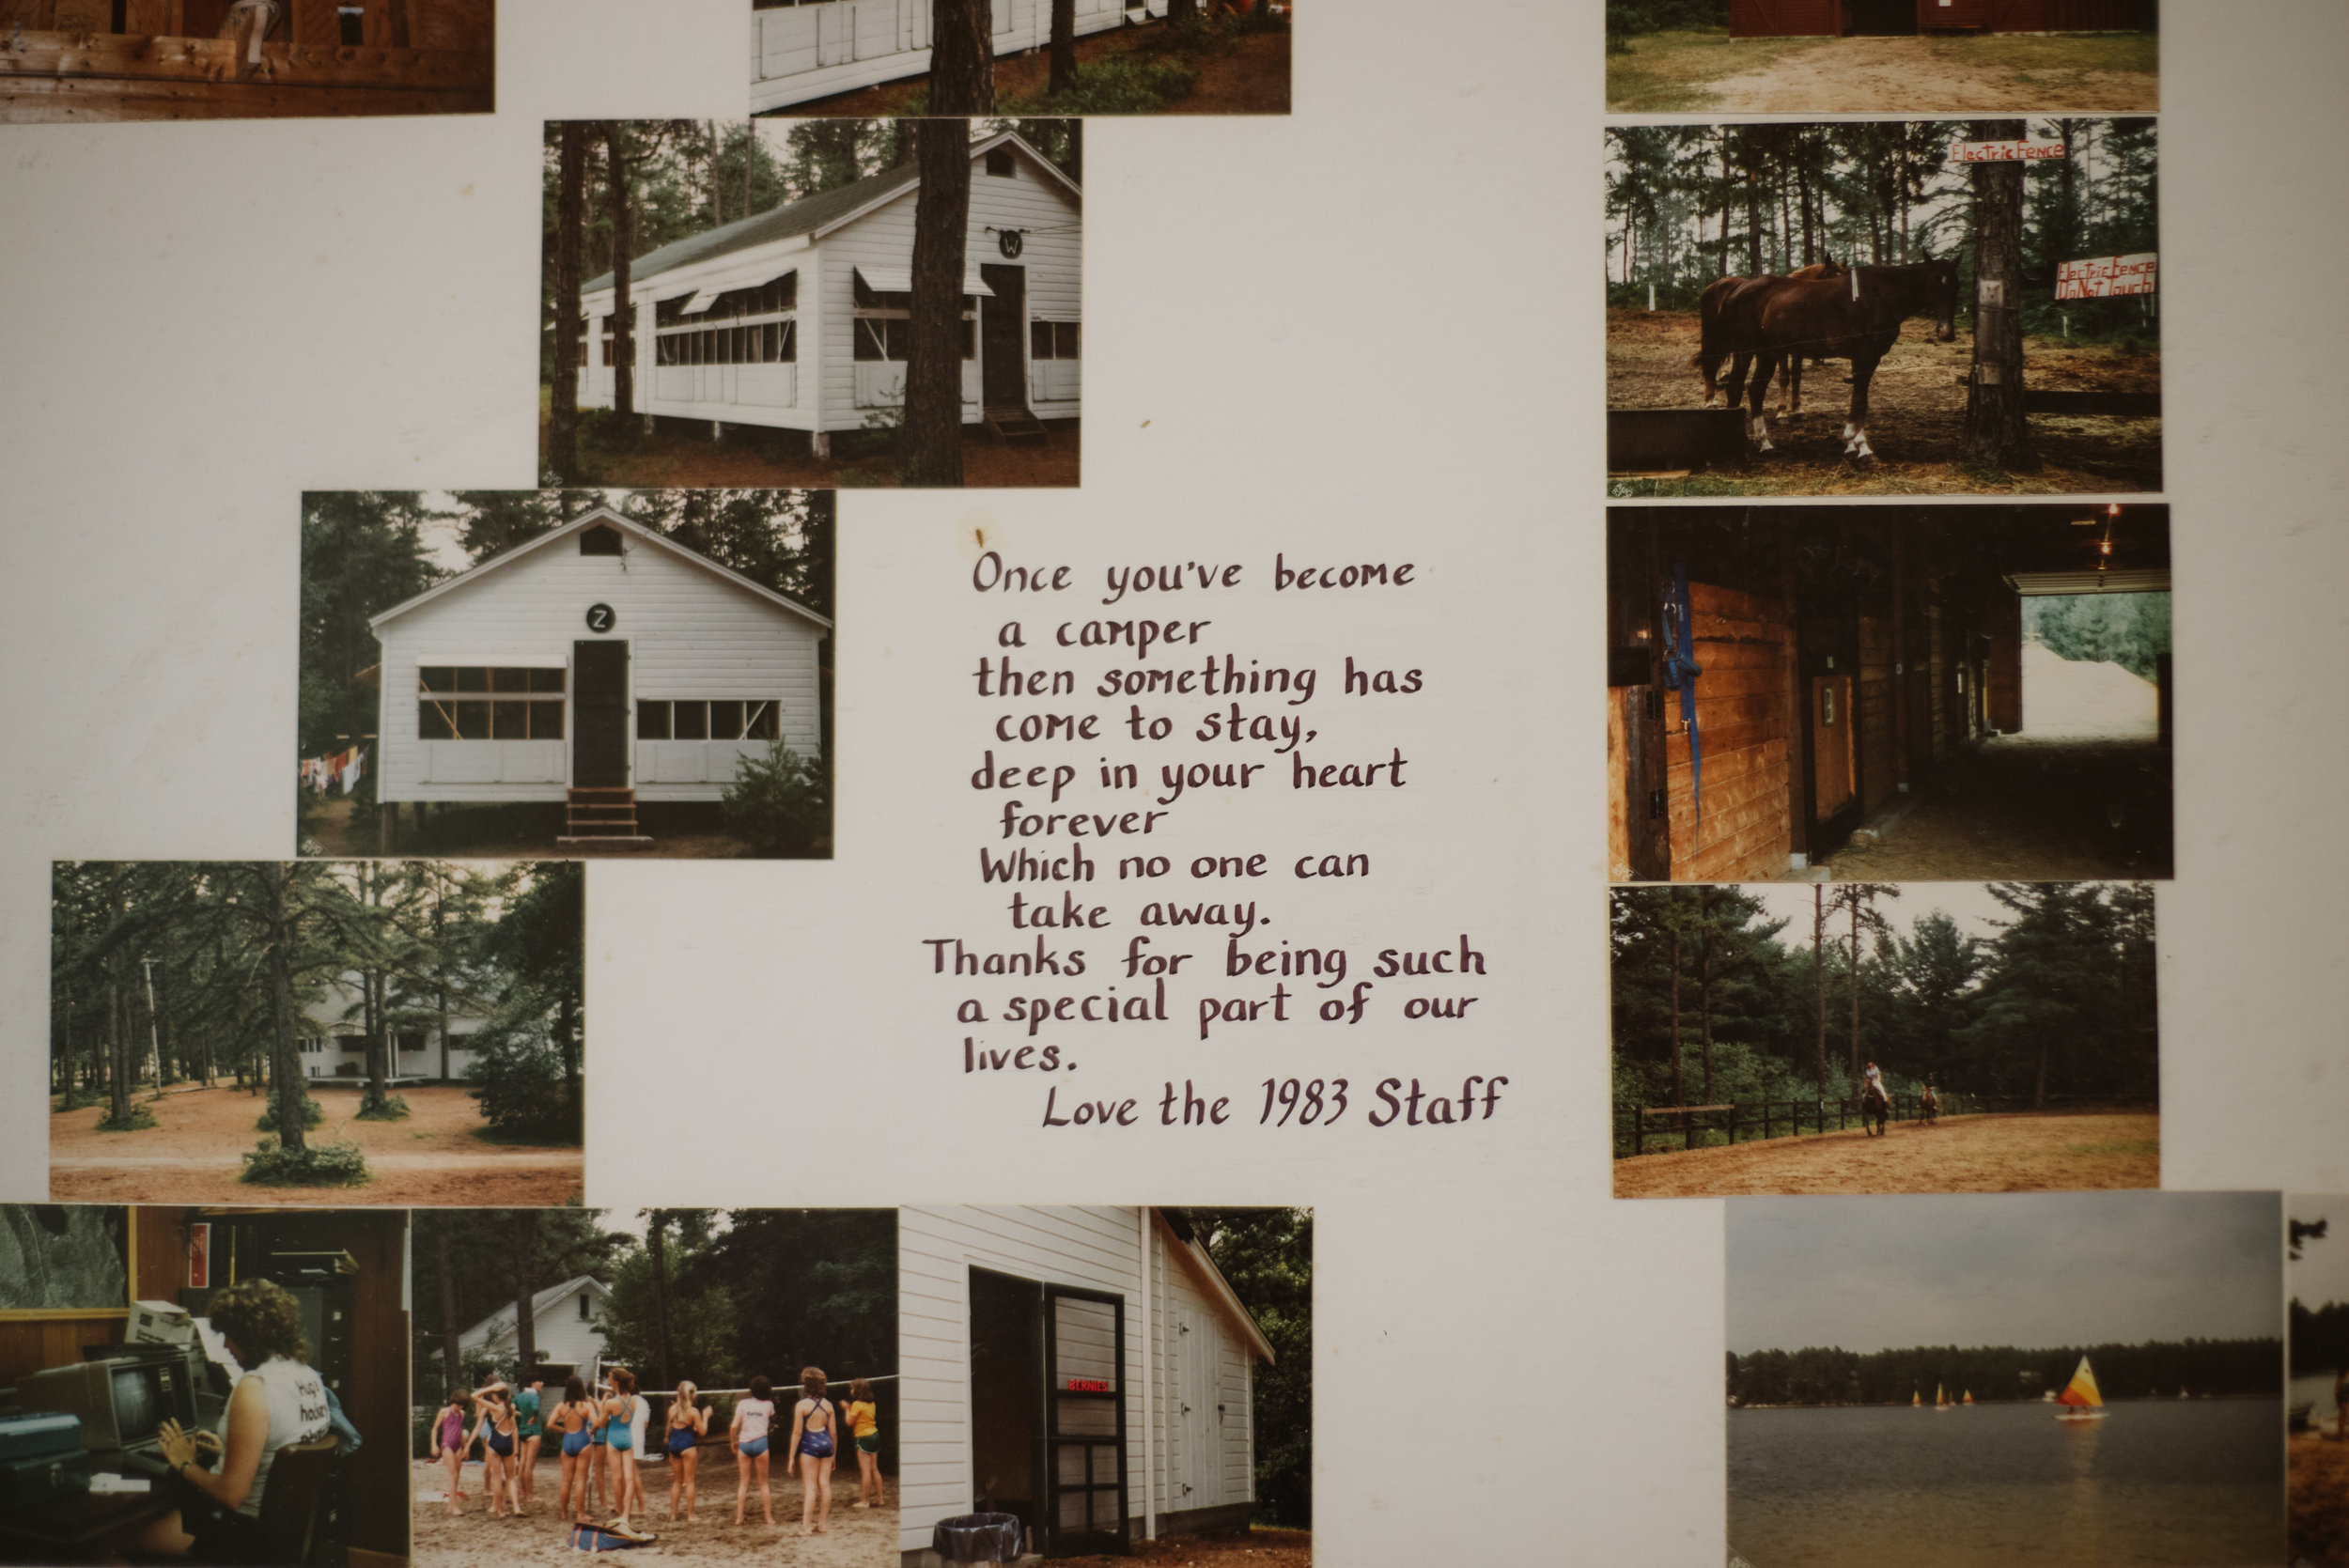 W
Electric Fence
Electric Fence
Do Not Touch
Z
Once you've become
a camper
then something has
come to stay,
deep in your heart
forever
Which no one can
take away.
Thanks for being such
a special part of our
lives.
Love the 1983 Staff
BERNIES